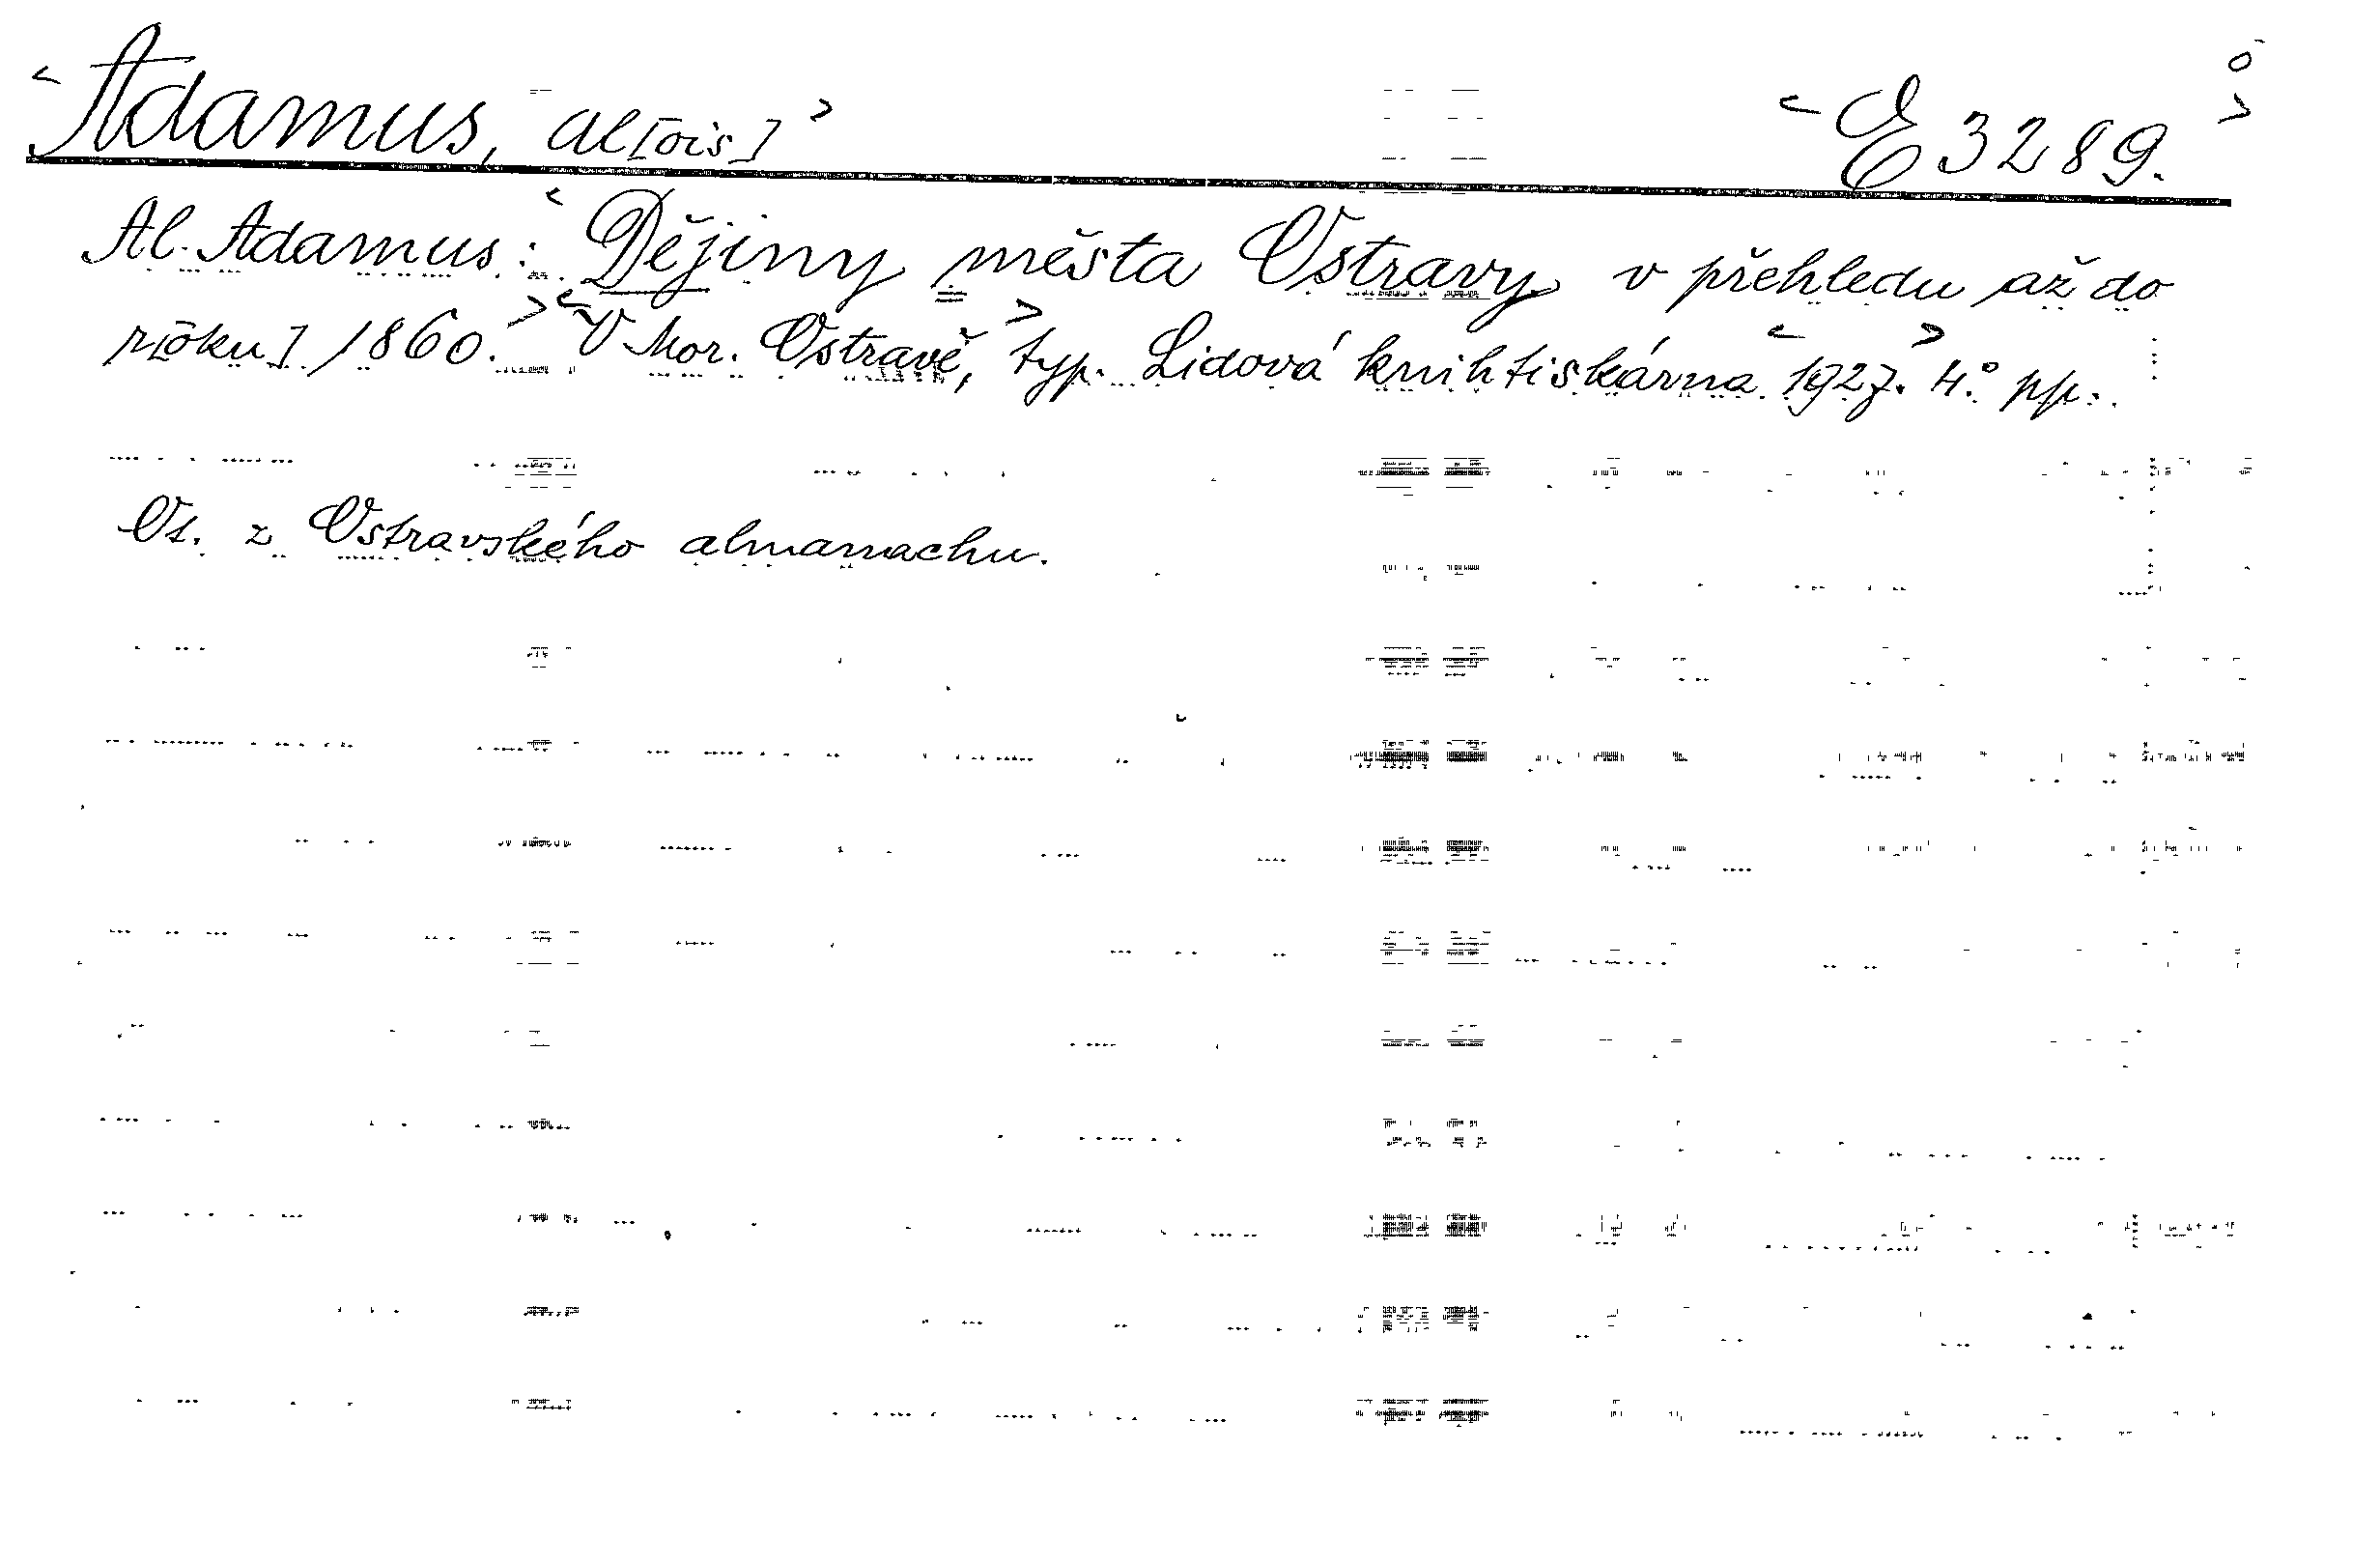 <Adamus, Al[ois]> <E 3289.>
Al. Adamus: <Dějiny města Ostravy v přehledu až do
r[oku] 1860.> <V Mor. Ostravě,> typ. Lidová knihtiskárna <1927.> 4.° pp.
Ot. z Ostravského almanachu.